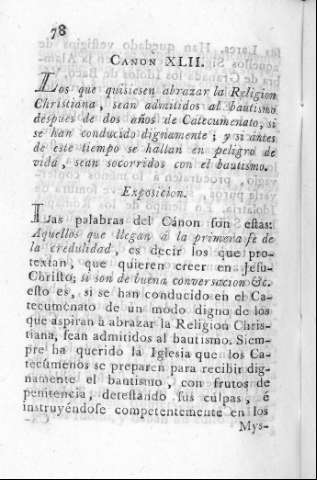 78
CANON XLII.
Los que quisiesen abrazar la Religion
Christiana, sean admitidos al bautismo
despues de dos años de Catecumenato, si
se han conducido dignamente; y si antes
de este tiempo se hallan en peligro de
vida, sean socorridos con el bautismo.
Exposicion.
Las palabras del Cánon son estas:
Aquellos que llegan á la primera fe de
la credulidad, es decir los que pro-
textan, que quieren creer en Jesu-
Christo; si son de buena conversacion &c.
esto es, si se han conducido en el Ca-
tecumenato de un modo digno de los
que aspiran á abrazar la Religion Chris-
tiana, sean admitidos al bautismo. Siem-
pre ha querido la Iglesia que los Ca-
tecúmenos se preparen para recibir dig-
namente el bautismo, con frutos de
penitencia, detestando sus culpas, é
instruyéndose competentemente en los
Mys-